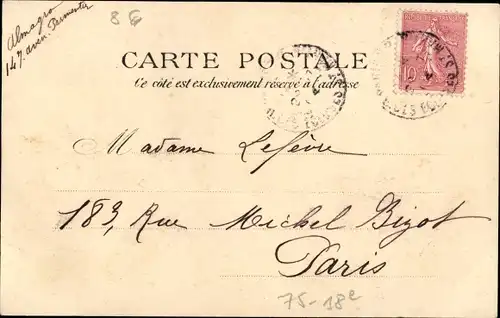 Almagro
147. aven. Parmentier
86
CARTE POSTALE
Ce côté est exclusivement réservé à l'adresse
10
Madame Lefèvre
183, Rue Michel Bizot
Paris
75-18e